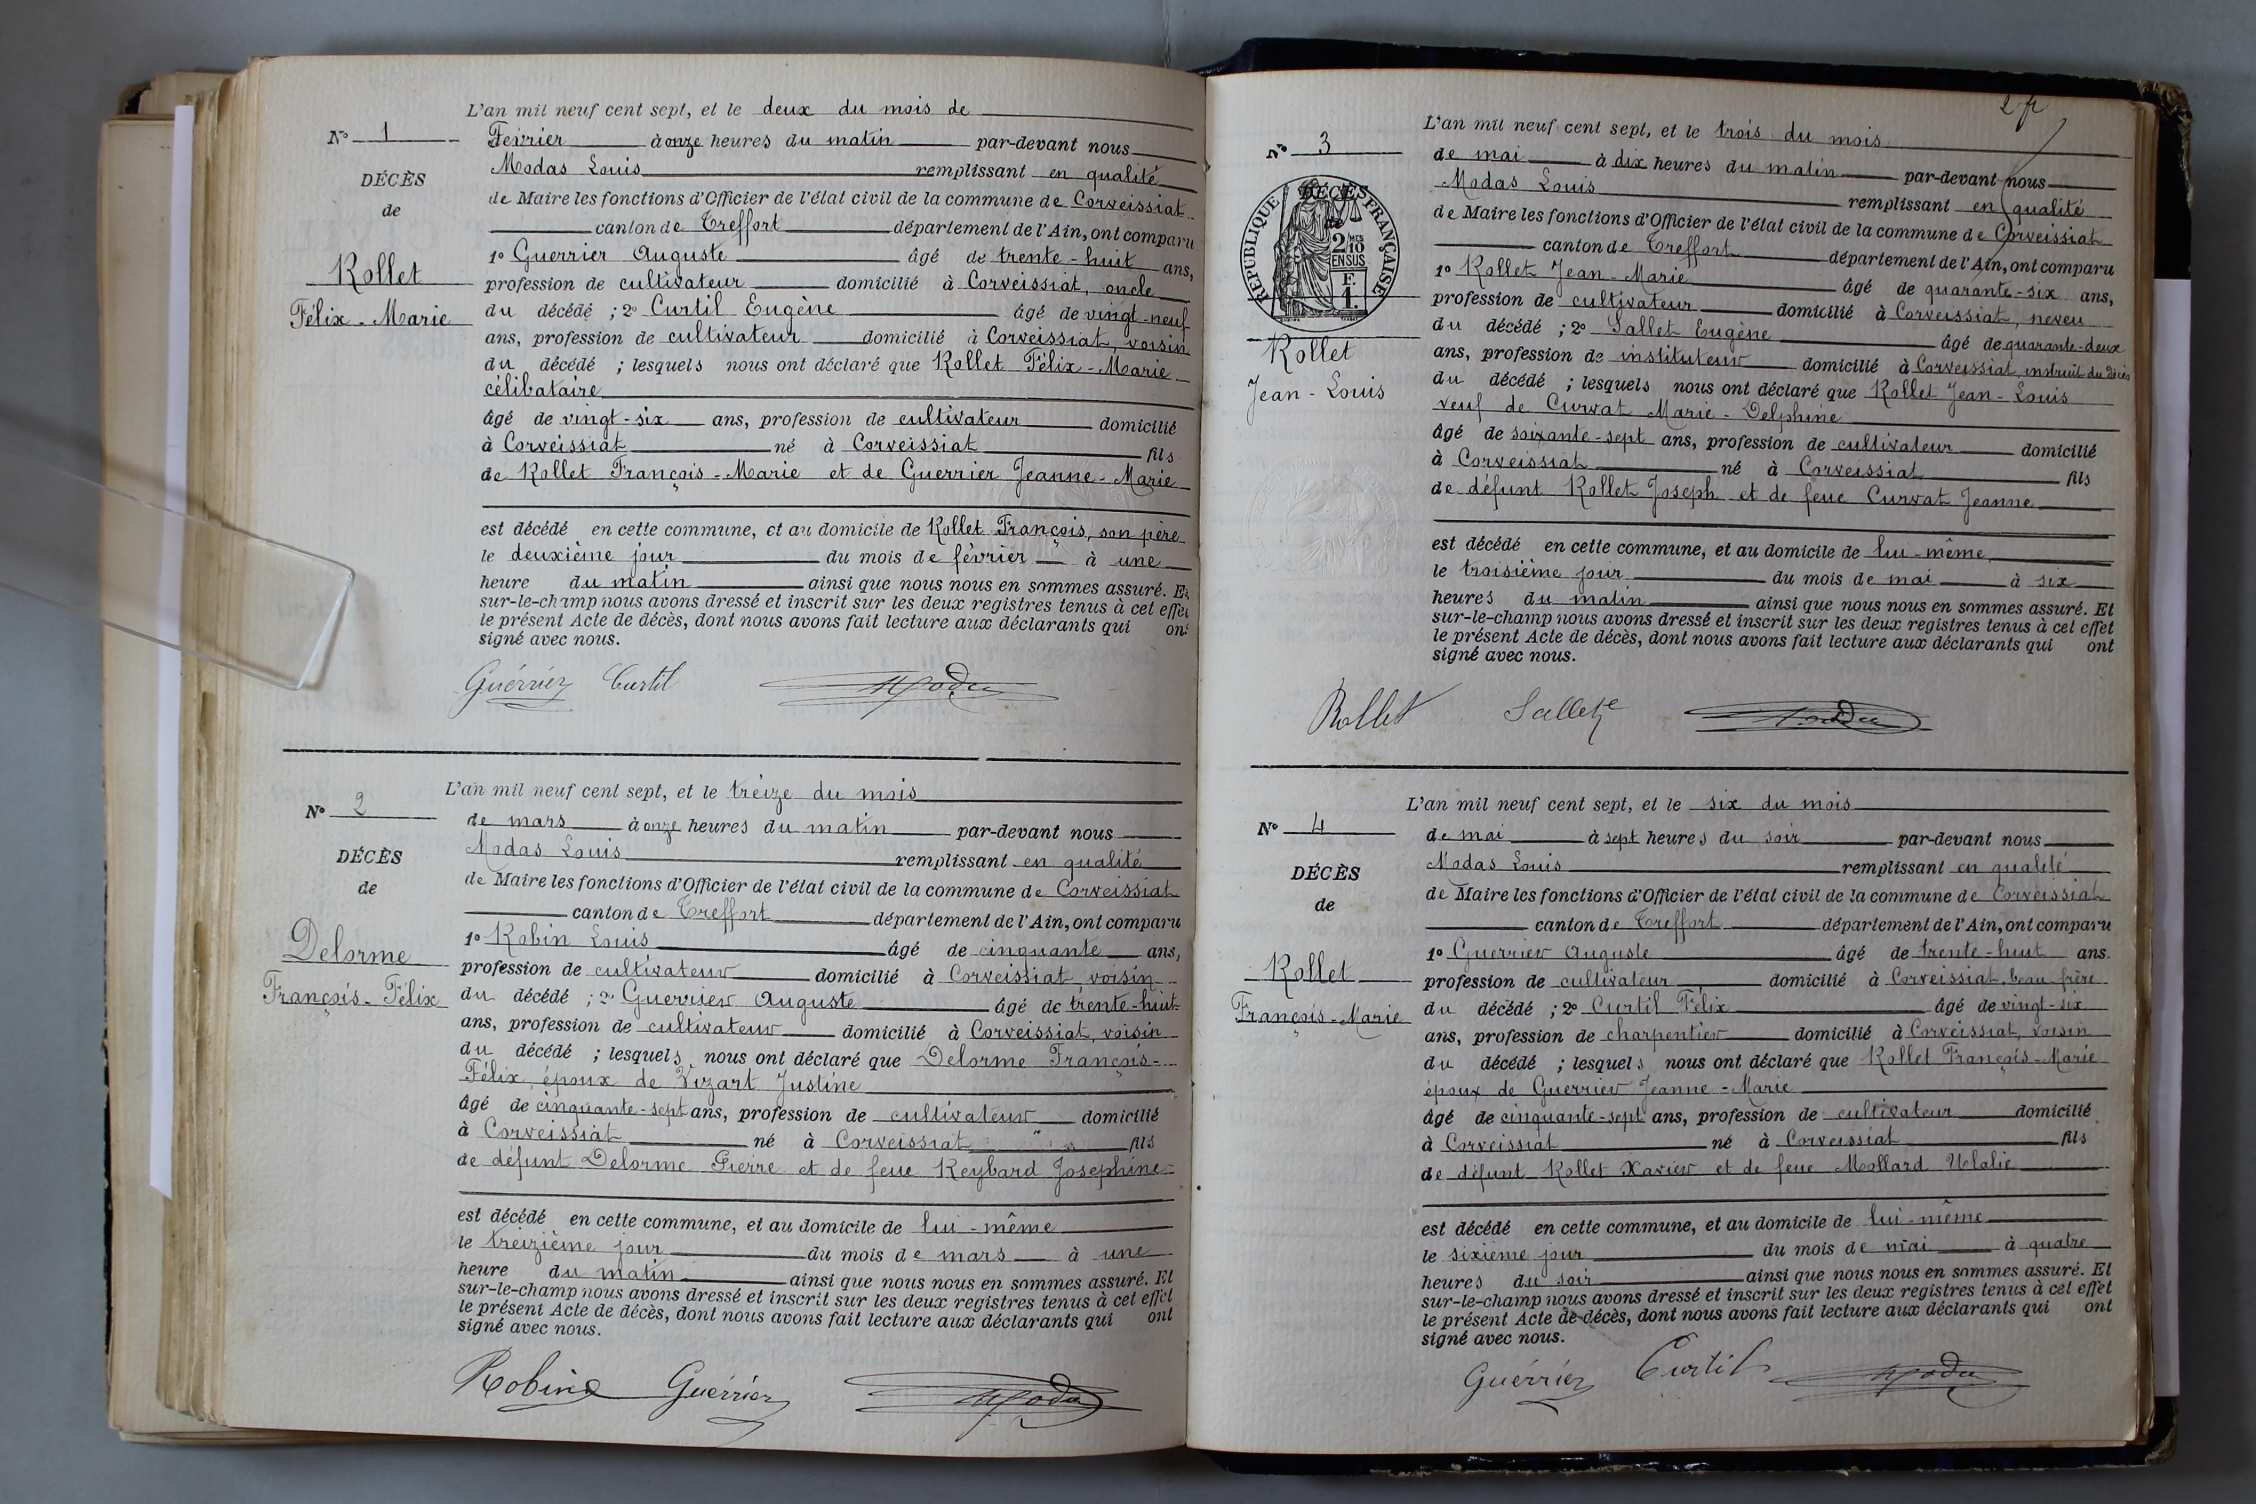 L'an mil neuf cent sept, et le deux du mois de
N° 1
Février à onze heures du matin par-devant nous
Modas Louis remplissant en qualité
DÉCÈS
de Maire les fonctions d'Officier de l'état civil de la commune de Corveissiat
de
canton de Treffort département de l'Ain, ont comparu
1° Guerrier Auguste âgé de trente-huit ans,
Rollet
profession de cultivateur domicilié à Corveissiat, oncle
Félix-Marie
du décédé ; 2° Curtil Eugène âgé de vingt-neuf
ans, profession de cultivateur domicilié à Corveissiat, voisin
du décédé ; lesquels nous ont déclaré que Rollet Félix-Marie
célibataire
âgé de vingt-six ans, profession de cultivateur domicilié
à Corveissiat né à Corveissiat fils
de Rollet François-Marie et de Guerrier Jeanne-Marie
est décédé en cette commune, et au domicile de Rollet François, son père
le deuxième jour du mois de février à une
heure du matin ainsi que nous nous en sommes assuré. Et
sur-le-champ nous avons dressé et inscrit sur les deux registres tenus à cet effet
le présent Acte de décès, dont nous avons fait lecture aux déclarants qui ont
signé avec nous.
Guérrier Curtil Modas
L'an mil neuf cent sept, et le treize du mois
N° 2
de mars à onze heures du matin par-devant nous
Modas Louis remplissant en qualité
DÉCÈS
de Maire les fonctions d'Officier de l'état civil de la commune de Corveissiat
de
canton de Treffort département de l'Ain, ont comparu
1° Robin Louis âgé de cinquante ans,
Delorme
profession de cultivateur domicilié à Corveissiat, voisin
François-Félix
du décédé ; 2° Guerrier Auguste âgé de trente-huit
ans, profession de cultivateur domicilié à Corveissiat, voisin
du décédé ; lesquels nous ont déclaré que Delorme François-
Félix, époux de Vizart Justine
âgé de cinquante-sept ans, profession de cultivateur domicilié
à Corveissiat né à Corveissiat fils
de défunt Delorme Pierre et de feue Reybard Josephine
est décédé en cette commune, et au domicile de lui-même
le treizième jour du mois de mars à une
heure du matin ainsi que nous nous en sommes assuré. Et
sur-le-champ nous avons dressé et inscrit sur les deux registres tenus à cet effet
le présent Acte de décès, dont nous avons fait lecture aux déclarants qui ont
signé avec nous.
Robin Guérrier Modas
2 fr
L'an mil neuf cent sept, et le trois du mois
N° 3
de mai à dix heures du matin par-devant nous
Modas Louis remplissant en qualité
DÉCÈS
de
RÉPUBLIQUE FRANÇAISE
2 MES
10
EN SUS
F.
1.
de Maire les fonctions d'Officier de l'état civil de la commune de Corveissiat
canton de Treffort département de l'Ain, ont comparu
1° Rollet Jean-Marie âgé de quarante-six ans,
profession de cultivateur domicilié à Corveissiat, neveu
du décédé ; 2° Sallet Eugène âgé de quarante-deux
Rollet
ans, profession de instituteur domicilié à Corveissiat, instruit du décès
Jean-Louis
du décédé ; lesquels nous ont déclaré que Rollet Jean-Louis
veuf de Curvat Marie-Delphine
âgé de soixante-sept ans, profession de cultivateur domicilié
à Corveissiat né à Corveissiat fils
de défunt Rollet Joseph et de feue Curvat Jeanne
est décédé en cette commune, et au domicile de lui-même
le troisième jour du mois de mai à six
heures du matin ainsi que nous nous en sommes assuré. Et
sur-le-champ nous avons dressé et inscrit sur les deux registres tenus à cet effet
le présent Acte de décès, dont nous avons fait lecture aux déclarants qui ont
signé avec nous.
Rollet Sallet Modas
L'an mil neuf cent sept, et le six du mois
N° 4
de mai à sept heures du soir par-devant nous
Modas Louis remplissant en qualité
DÉCÈS
de Maire les fonctions d'Officier de l'état civil de la commune de Corveissiat
de
canton de Treffort département de l'Ain, ont comparu
1° Guerrier Auguste âgé de trente-huit ans.
Rollet
profession de cultivateur domicilié à Corveissiat, beau-frère
François-Marie
du décédé ; 2° Curtil Félix âgé de vingt-six
ans, profession de charpentier domicilié à Corveissiat, voisin
du décédé ; lesquels nous ont déclaré que Rollet François-Marie
époux de Guerrier Jeanne-Marie
âgé de cinquante-sept ans, profession de cultivateur domicilié
à Corveissiat né à Corveissiat fils
de défunt Rollet Xavier et de feue Mollard Ulalie
est décédé en cette commune, et au domicile de lui-même
le sixième jour du mois de mai à quatre
heures du soir ainsi que nous nous en sommes assuré. Et
sur-le-champ nous avons dressé et inscrit sur les deux registres tenus à cet effet
le présent Acte de décès, dont nous avons fait lecture aux déclarants qui ont
signé avec nous.
Guérrier Curtil Modas